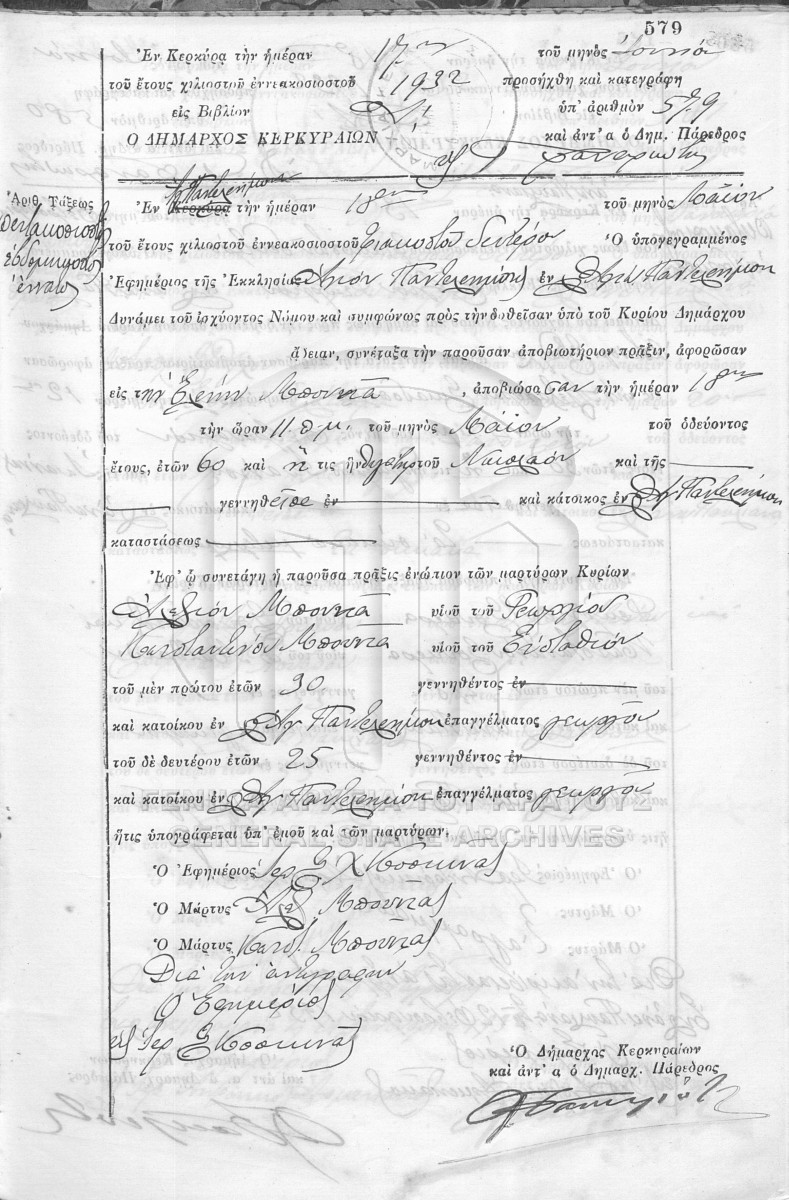 579
Ἐν Κερκύρᾳ τὴν ἡμέραν 17ην τοῦ μηνὸς Ἰουνίου
τοῦ ἔτους χιλιοστοῦ ἐννεακοσιοστοῦ 1932 προσήχθη καὶ κατεγράφη
εἰς Βιβλίον ὑπ' ἀριθμὸν 579
Ὁ ΔΗΜΑΡΧΟΣ ΚΕΡΚΥΡΑΙΩΝ καὶ ἀντ' α ὁ Δημ. Πάρεδρος
Ἀριθ. Τάξεως
ἑβδομηκοστὸν
ἔννατον
Ἁγ Παντελεήμονι
Ἐν Κερκύρᾳ τὴν ἡμέραν 18ην τοῦ μηνὸς Μαΐου
τοῦ ἔτους χιλιοστοῦ ἐννεακοσιοστοῦ τριακοστοῦ δευτέρου Ὁ ὑπογεγραμμένος
Ἐφημέριος τῆς Ἐκκλησίας Ἁγίου Παντελεήμονος ἐν Ἁγίῳ Παντελεήμονι
Δυνάμει τοῦ ἰσχύοντος Νόμου καὶ συμφώνως πρὸς τὴν δοθεῖσαν ὑπὸ τοῦ Κυρίου Δημάρχου
ἄδειαν, συνέταξα τὴν παροῦσαν ἀποβιωτήριον πρᾶξιν, ἀφορῶσαν
εἰς την Ἑλένην Μπουντᾶ, ἀποβιώσασαν τὴν ἡμέραν 18ην
τὴν ὥραν 11 π.μ. τοῦ μηνὸς Μαΐου τοῦ ὁδεύοντος
ἔτους, ἐτῶν 60 καὶ ἥ τις ἦν θυγάτηρ τοῦ Νικολάου καὶ τῆς
γεννηθεῖσα ἐν καὶ κάτοικος ἐν Ἁγ Παντελεήμονι
καταστάσεως
Ἐφ' ᾧ συνετάγη ἡ παροῦσα πρᾶξις ἐνώπιον τῶν μαρτύρων Κυρίων
Ἀλεξίου Μπουντᾶ υἱοῦ τοῦ Γεωργίου
Κωνσταντίνου Μπουντᾶ υἱοῦ τοῦ Εὐσταθίου
τοῦ μὲν πρώτου ἐτῶν 30 γεννηθέντος ἐν
καὶ κατοίκου ἐν Ἁγ Παντελεήμονι ἐπαγγέλματος γεωργοῦ
τοῦ δὲ δευτέρου ἐτῶν 25 γεννηθέντος ἐν
καὶ κατοίκου ἐν Ἁγ Παντελεήμονι ἐπαγγέλματος γεωργοῦ
ΓΕΝΙΚΑ ΑΡΧΕΙΑ ΤΟΥ ΚΡΑΤΟΥΣ
ἥτις ὑπογράφεται ὑπ' ἐμοῦ καὶ τῶν μαρτύρων.
GENERAL STATE ARCHIVES
Ὁ Ἐφημέριος Ἱερ
Ὁ Μάρτυς Ἀλέξ. Μπουντᾶς
Ὁ Μάρτυς Κωνστ. Μπουντᾶς
Διὰ τὴν ἀντιγραφὴν
Ὁ Ἐφημέριος
Ἱερ
Ὁ Δήμαρχος Κερκυραίων
καὶ ἀντ' α ὁ Δημαρχ. Πάρεδρος